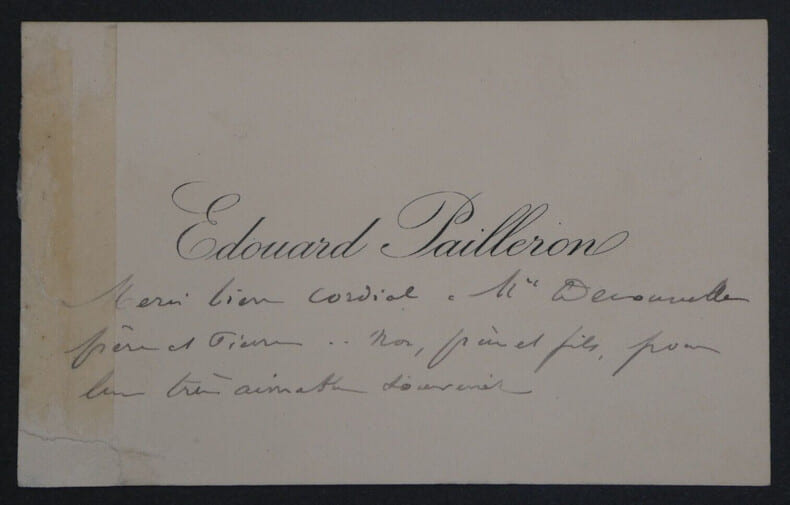 Edouard Pailleron
Merci bien cordial a Mrs Decourcelle
père et Pierre .. non, père et fils, pour
leur très aimable souvenir